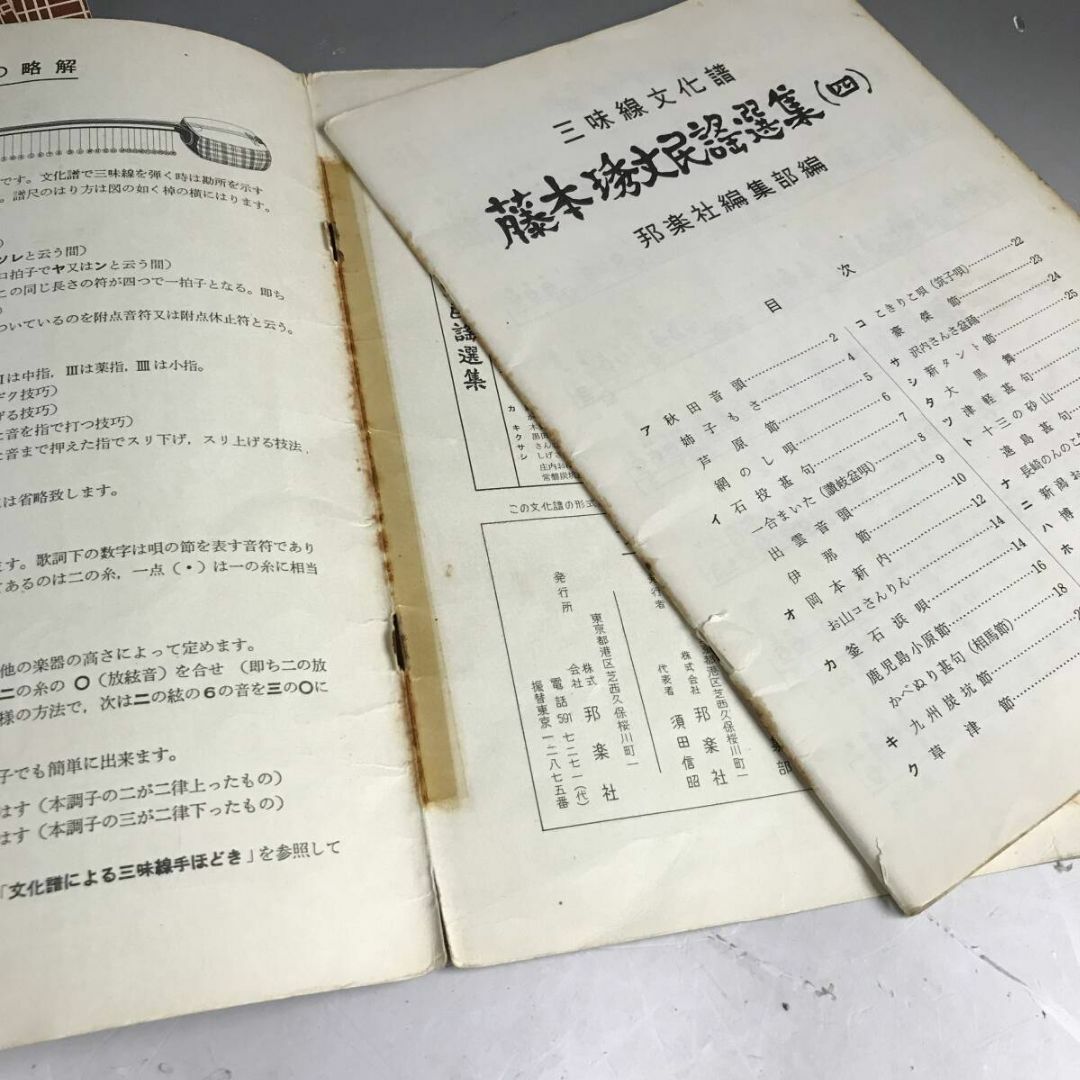 略解
です。文化譜で三味線を弾く時は勘所を示す
。譜尺のはり方は図の如く棹の横にはります。
ツレと云う間）
コ拍子でヤ又はンと云う間）
この同じ長さの符が四つで一拍子となる。即ち
ついているのを附点音符又は附点休止符と云う。
は中指，Ⅲは薬指，ⅢⅠは小指。
技巧）
げる技巧）
音を指で打つ技巧）
音まで押えた指でスリ下げ，スリ上げる技法，
は省略致します。
ます。歌詞下の数字は唄の節を表す音符であり
であるのは二の糸，一点（・）は一の糸に相当
他の楽器の高さによって定めます。
二の糸の〇（放絃音）を合せ（即ち二の放
様の方法で，次は二の絃の６の音を三の〇に
子でも簡単に出来ます。
はす（本調子の二が二律上ったもの）
はす（本調子の三が二律下ったもの）
「文化譜による三味線手ほどき」を参照して
謡選集
この文化譜の形式
発行者
東京都港区芝西久保桜川町一
株式会社 邦楽社
代表者 須田信昭
発行所
東京都港区芝西久保桜川町一
株式会社 邦楽社
電話591七二七一(代)
振替東京一二八七五番
三味線文化譜
藤本琇丈民謡選集(四)
邦楽社編集部編
目次
ア 秋田音頭 2
姉子もさ 4
芦原節 5
網のし唄 6
イ 石投甚句 7
一合まいた（讃岐盆唄） 8
出雲音頭 9
伊那節 10
オ 岡本新内 12
お山コさんりん 14
カ 釜石浜唄 14
鹿児島小原節 16
かべぬり甚句（相馬節） 18
キ 九州炭坑節
ク 草津節
コ こきりこ唄（筑子唄） 22
豪傑節 23
サ 沢内さんさ盆踊 24
シ 新タント節 25
タ 大黒舞
ツ 津軽甚句
ト 十三の砂山
遠島甚句
ナ 長崎のんのこ
ニ 新潟お
ハ 博
ホ